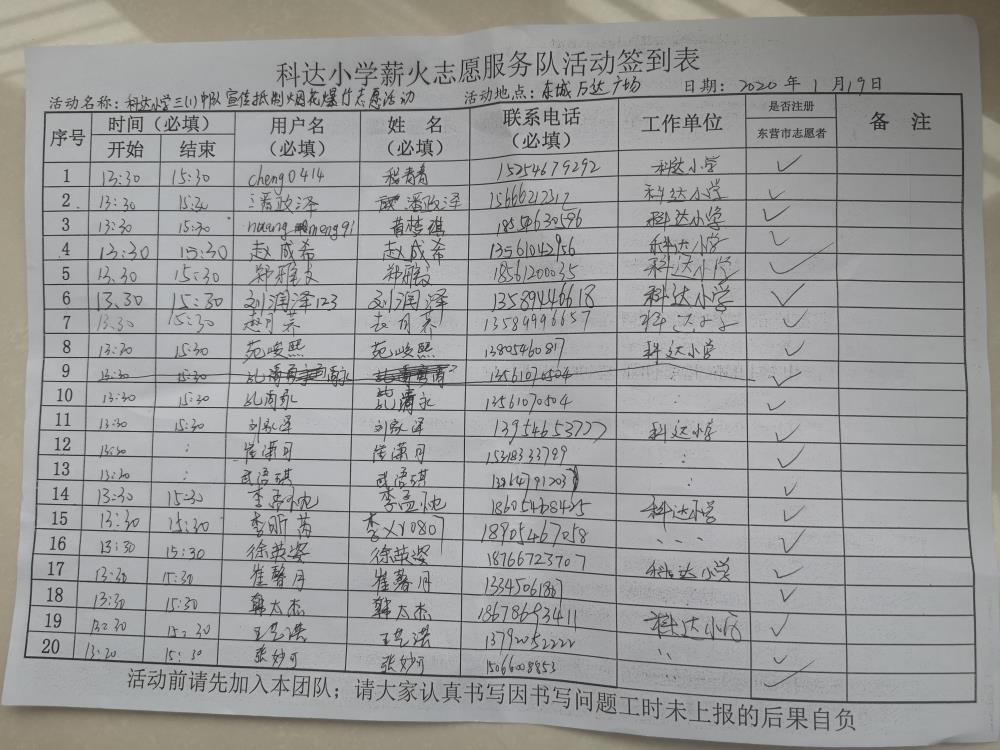 科达小学薪火志愿服务队活动签到表
活动名称：科达小学三(1)中队宣传抵制烟花爆竹志愿活动 活动地点：东城万达广场 日期：2020年1月19日
序号 时间（必填） 用户名（必填） 姓名（必填） 联系电话（必填） 工作单位 是否注册东营市志愿者 备注
开始 结束
1 13:30 15:30 cheng0414 程青青 15254679292 科达小学 ✓
2 13:30 15:30 潘政泽 潘政泽 15666212317 科达小学 ✓
3 13:30 15:30 黄梦琪 18554630596 科达小学 ✓
4 13:30 15:30 赵成希 赵成希 13561042956 科达小学 ✓
5 13:30 15:30 郑雅文 郑雅文 18561200035 科达小学 ✓
6 13:30 15:30 刘润泽123 刘润泽 13589446618 科达小学 ✓
7 13:30 15:30 13589996657 科达小学 ✓
8 13:30 15:30 苑峻熙 苑峻熙 13805460817 科达小学 ✓
9 13:30 15:30 13561070504 ✓
10 13:30 15:30 13561070504 ✓
11 13:30 15:30 13954653727 科达小学 ✓
12 13:30 : 崔潇月 崔潇月 15318333799 : ✓
13 13:30 : 武语琪 武语琪 : ✓
14 13:30 15:30 18605468425 科达小学 ✓
15 13:30 15:30 李昕芮 李XY0807 18905467058 ✓
16 13:30 15:30 徐英姿 徐英姿 18766723707 科达小学 ✓
17 13:30 15:30 崔馨月 崔馨月 ✓
18 13:30 15:30 韩太杰 韩太杰 18678693411 科达小学 ✓
19 13:30 15:30 13792052222 ✓
20 13:30 15:30 张妙可 张妙可 15066008853 ✓
活动前请先加入本团队；请大家认真书写因书写问题工时未上报的后果自负